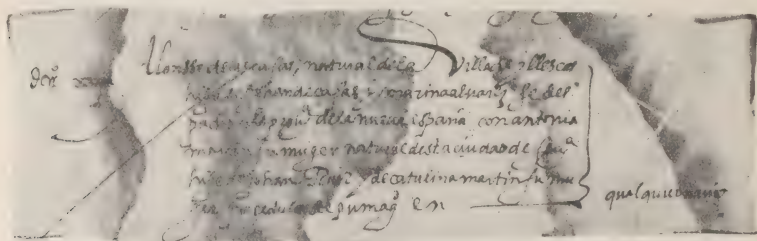 Alonsso de as casas, natural de la Villa de yllescas
hijo de Johan de casas i maria alvarez se des
pacho a la provi de la nueva españa con antonia
martin su muger natural desta ciudad de
hija de Johan Ruiz y de catalina martin su mu
ger por cedula de su magd en
qualquier nao